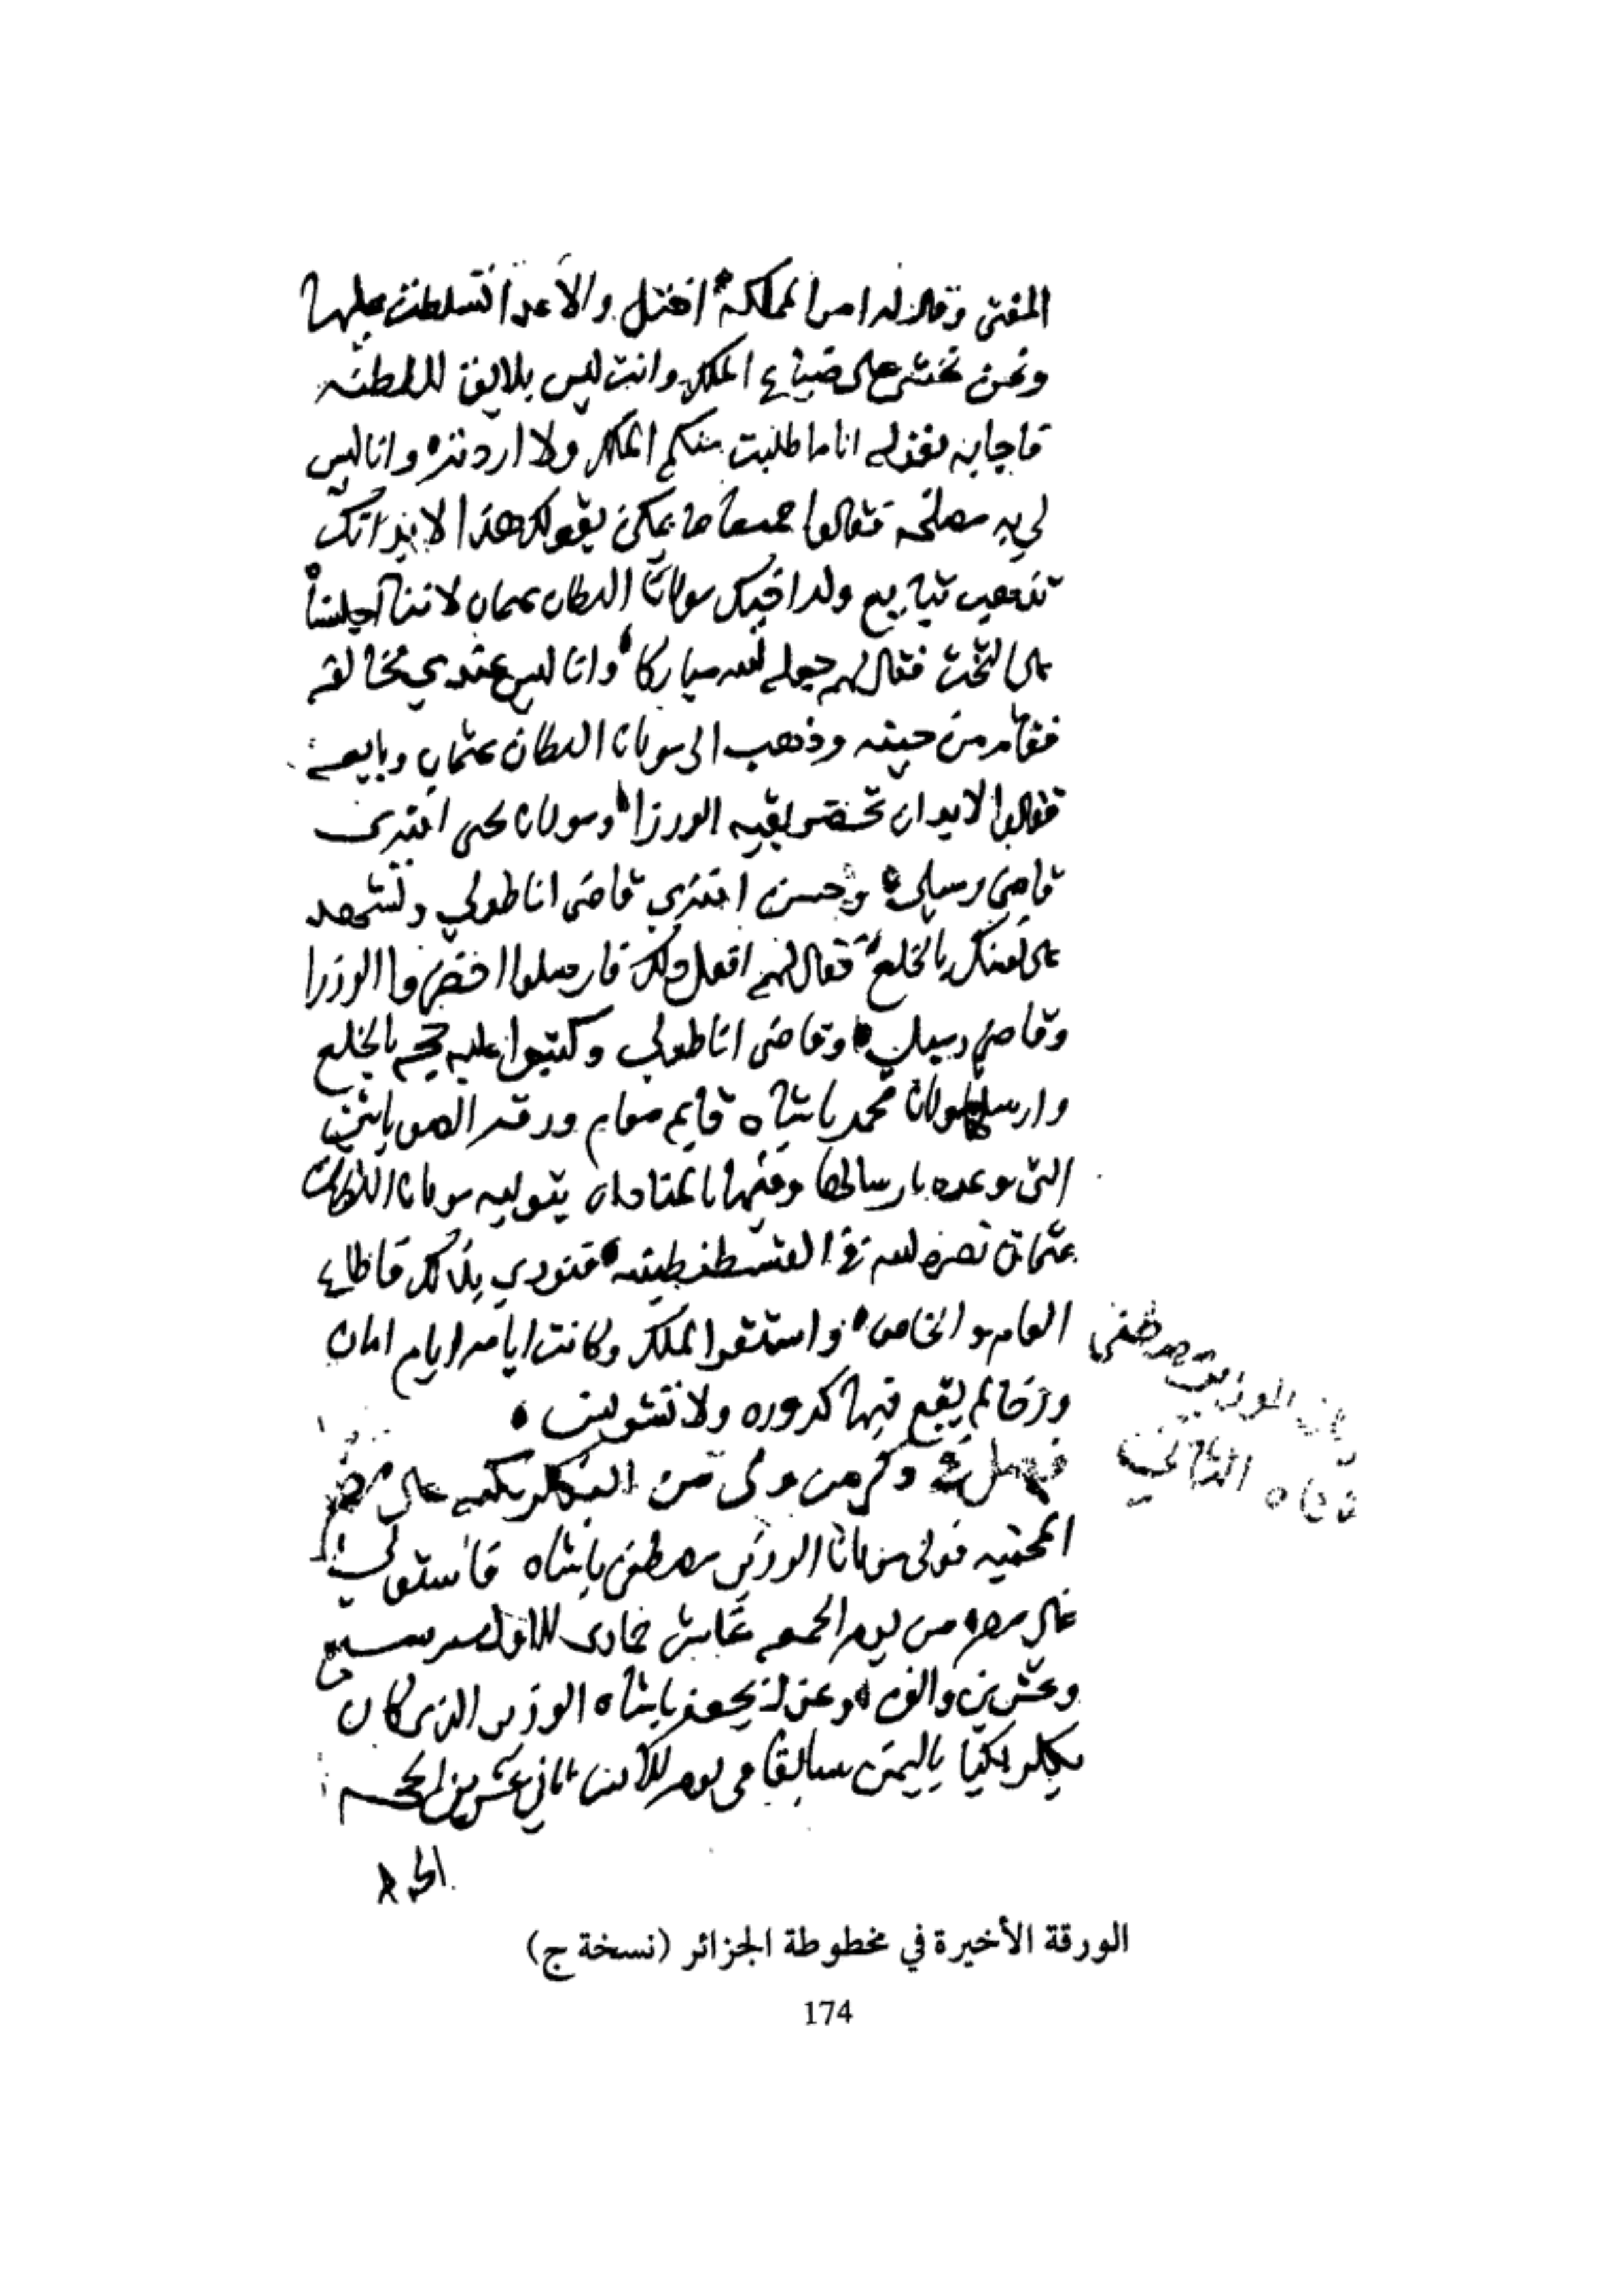 المفتى وقال له امر المملكة اختل والاعدا تسلطت عليها
ونحن نخشى على ضياع الملك وانت ليس بلايق للسلطنه
فاجابه بقوله انا ما طلبت منكم الملك ولا اردته وانا ليس
لي به مصلحه فقالوا جميعا ما يمكن بقولك هذا الا بذاتك
تذهب تبايع ولد اخيك مولانا السلطان عثمان لاننا اجلسناه
على التخت فقال لهم جعله الله مباركا وانا ليس عندي مخالفه
فقام من حينه وذهب الى مولانا السلطان عثمان وبايعه
فقالوا لابد ان تحضر بقيه الوزرا ومولانا يحيى افندى
قاضي رميلي وحسن افندي قاضى اناطولي ونشهد
على نفسك بالخلع فقال لهم افعل ذلك فارسلوا احضروا الوزرا
وقاضي رميلي وقاضى اناطولي وكتبوا عليه حجه بالخلع
وارسل مولانا محمد باشاه قايم مقام ورقه
التى وعده بارسالها بتوليه مولانا السلطان
عثمان نصره الله في القسطنطينيه فنودي بذلك فاطاع
العام والخاص واستقر الملك وكانت ايامه ايام امان
ورخا لم يقع فيها كدوره ولا تشويش
فصل في ذكر من ولى من البكلربكيه على مصر
المحميه فولى مولانا الوزير مصطفى باشاه فاستولى
على مصر من يوم الجمعه عاشر جمادى الاول سنه سبع
وعشرين والف وعزل جعفر باشاه الوزير الذي كان
بكلربكيا باليمن سابقا في يوم الاثنين ثاني عشرين
الورقة الأخيرة في مخطوطة الجزائر (نسخة ج)
174